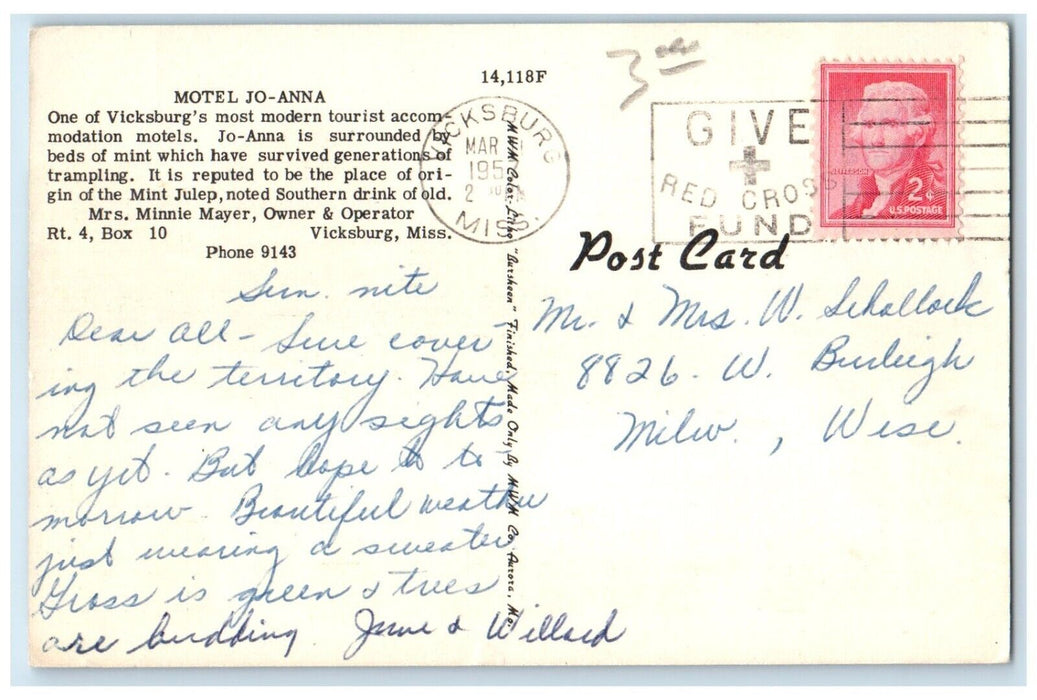 3 00
14,118F
MOTEL JO-ANNA
One of Vicksburg's most modern tourist accom-
modation motels. Jo-Anna is surrounded by
beds of mint which have survived generations of
trampling. It is reputed to be the place of ori-
gin of the Mint Julep, noted Southern drink of old.
Mrs. Minnie Mayer, Owner & Operator
Rt. 4, Box 10 Vicksburg, Miss.
Phone 9143
VICKSBURG
MAR
195
2
MISS.
GIVE
RED CROSS
FUND
JEFFERSON
2¢
U.S. POSTAGE
Post Card
MWM Color-Litho "Dursheen" Finished, Made Only By MWM Co. Aurora, Mo.
Sun. nite
Dear all - Sure cover-
ing the territory. Have
not seen any sights
as yet. But hope to to
morrow. Beautiful weather
just wearing a sweater
Grass is green & trees
are budding. June & Willard
Mr. & Mrs. W. Schallock
8826. W. Burleigh
Milw. , Wisc.